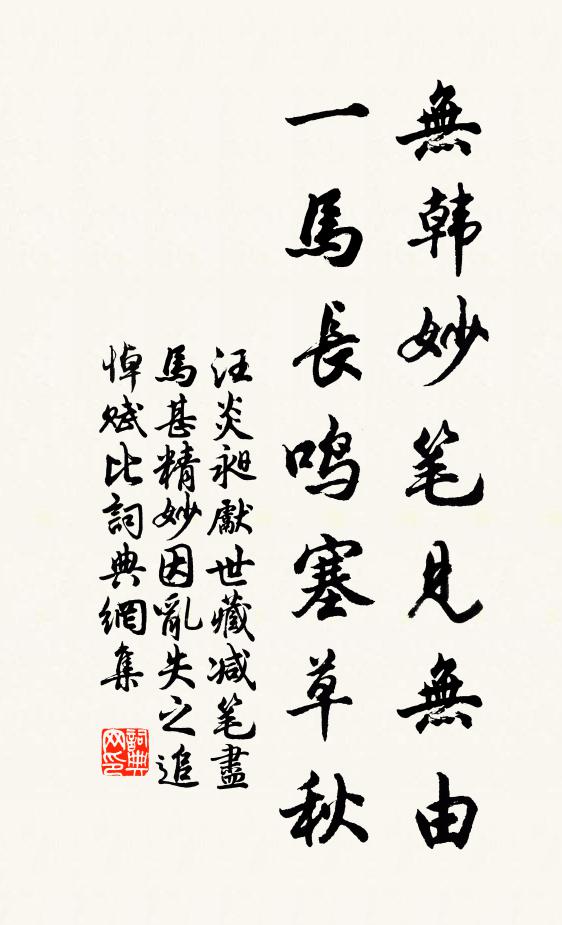 無韩妙笔見無由
一馬長鸣塞草秋
汪炎昶獻世藏减笔盡
馬甚精妙因亂失之追
悼赋比詞典網集
詞典
网印